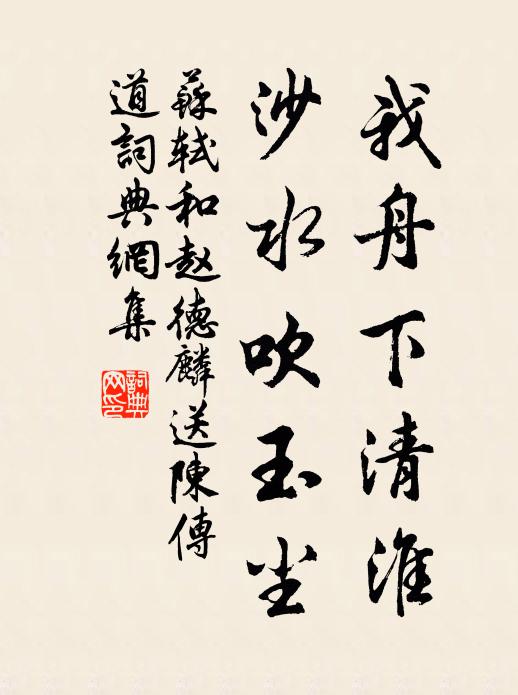 我舟下清淮
沙水吹玉尘
蘇軾和赵德麟送陳傳
道詞典網集
詞典
网印